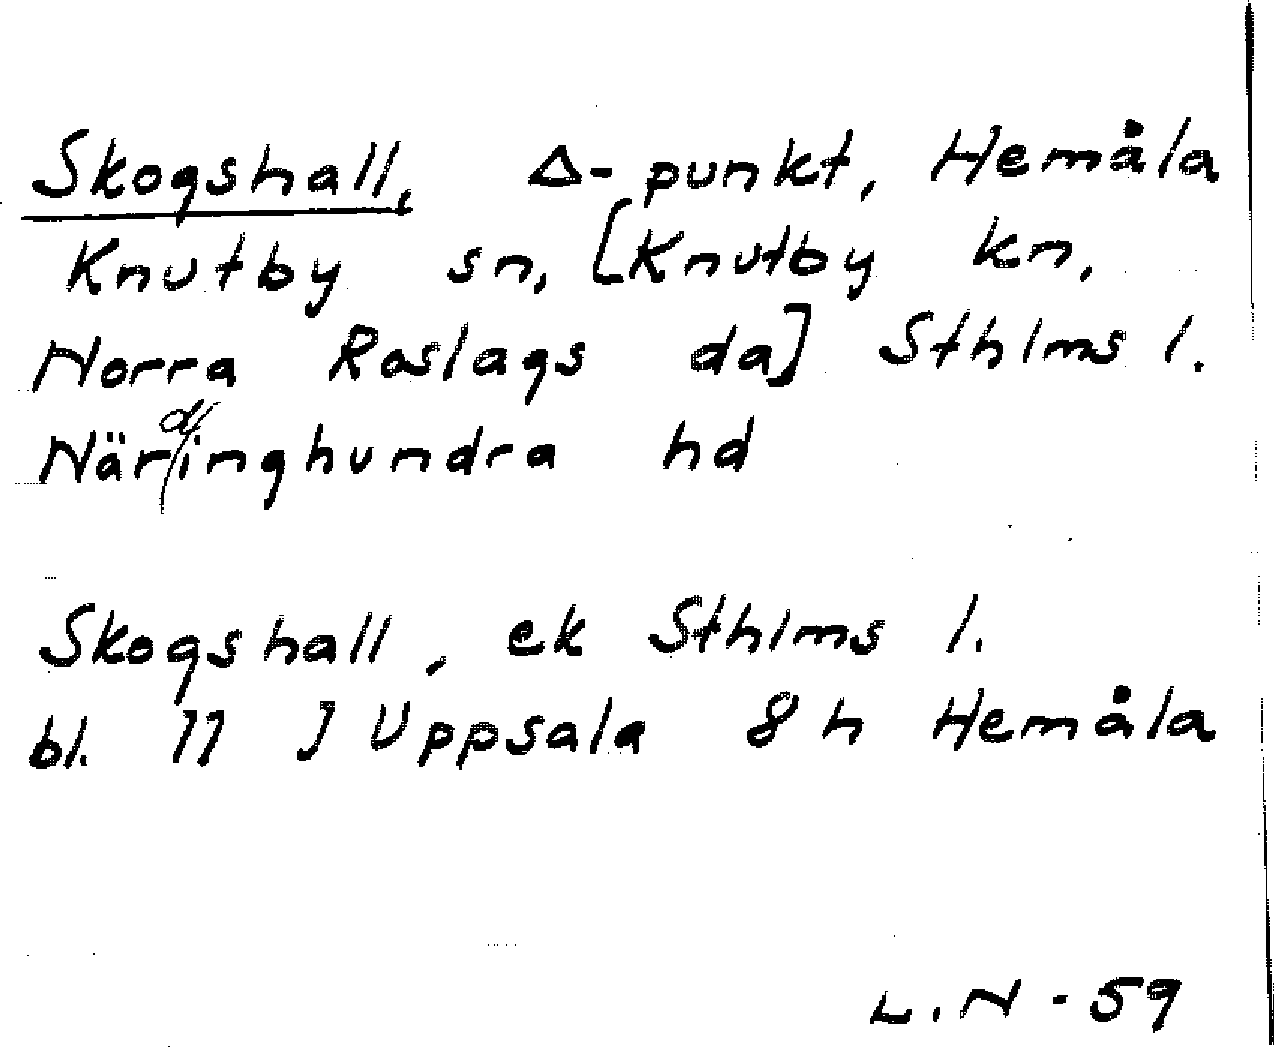 Skogshall, Δ-punkt, Hemåla
Knutby sn, [Knutby kn,
Norra Roslags da] Sthlms l.
Närdinghundra hd
Skogshall, ek Sthlms l.
bl. 11 J Uppsala 8 h Hemåla
L.N - 59